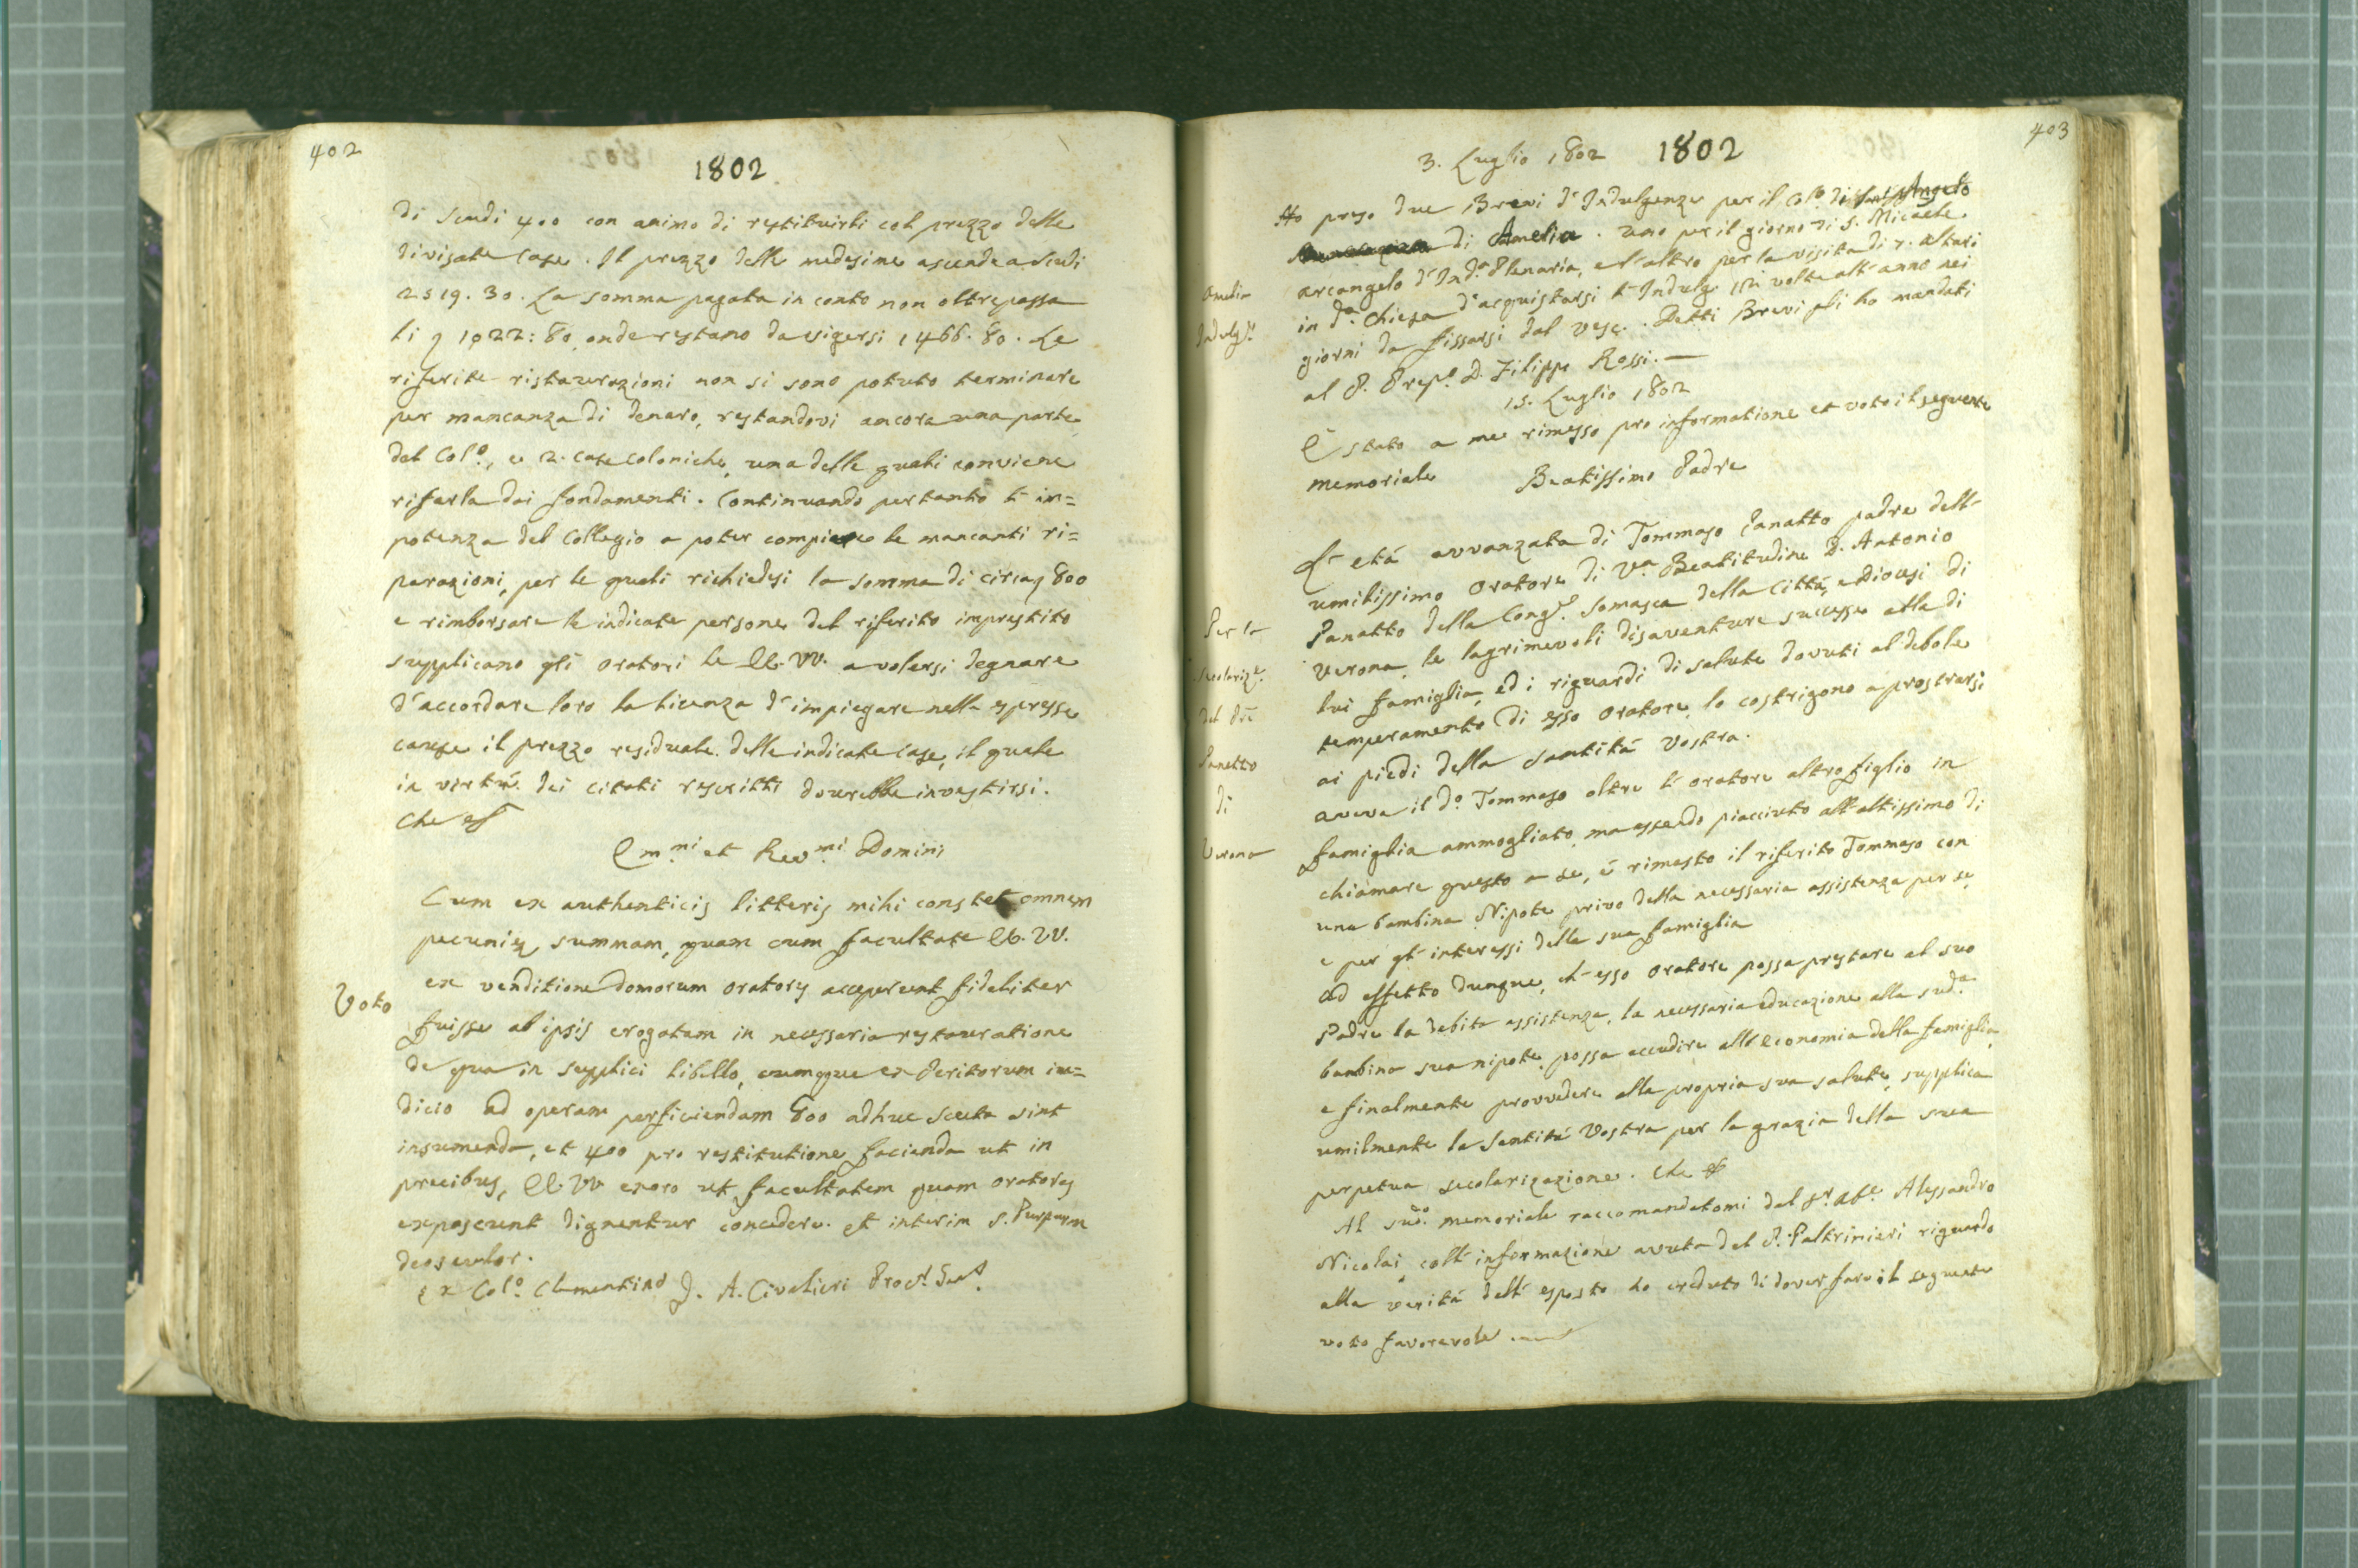 402
1802
di Scudi 400 con animo di restituirli col prezzo delle
divisate Case. Il prezzo delle medesime ascende a Scudi
2519. 30. La somma pagata in conto non oltrepassa
li 1022: 80, onde restano da esigersi 1466. 80. Le
riferite ristaurazioni non si sono potuto terminare
per mancanza di denaro, restandovi ancora una parte
del Col.º, e 2. Case Coloniche, una delle quali conviene
rifarla dai fondamenti. Continuando pertanto l'im=
potenza del Collegio a poter compiere le mancanti ri=
parazioni, per le quali richiedesi la somma di circa 800
e rimborsare le indicate persone del riferito imprestito
supplicano gli Oratori le EE. VV. a volersi degnare
d'accordare loro la licenza d'impiegare nelle espresse
cause il prezzo residuale delle indicate Case, il quale
in virtù dei citati rescritti dovrebbe investirsi.
Che
Em.ni et Rev.mi Domini
Cum ex authenticis litteris mihi constet omnem
pecuniæ summam, quam cum facultate EE. VV.
Voto
ex venditione domorum Oratores acceperunt fideliter
fuisse ab ipsis erogatam in necessaria restauratione
de qua in supplici libello, cumque ex Peritorum iu=
dicio ad operam perficiendam 800 adhuc Scuta sint
insumenda, et 400 pro restitutione facienda ut in
precibus, EE. VV exoro ut facultatem quam Oratores
exposcunt dignentur concedere. et interim S. Purpuram
deosculor.
Ex Col.º Clementino J. A. Civalieri Proc.r
403
3. Luglio 1802 1802
Ho preso due Brevi d'Indulgenze per il Col.º di Sant'Angelo
di Amelia. Uno per il giorno di S. Micaele
Amelia
Arcangelo d'Ind.a Plenaria, e l'altro per la visita di 7. Altari
in d.a Chiesa d'acquistarsi l'Indulg. volte all'anno nei
Indulg.e
giorni da fissarsi dal Vesc. Detti Brevi gli ho mandati
al P. Prep.º D. Filippo Rossi.
15. Luglio 1802
È stato a me rimesso pro informatione et voto il seguente
memoriale Beatissimo Padre
L'età avvanzata di Tommaso Panatto padre dell'
umilissimo Oratore di V.a Beatitudine D. Antonio
Per la
Panatto della Cong.e Somasca della Città, e Diocesi di
Verona, le lagrimevoli disaventure successe alla di
secolariz.e
lui famiglia, ed i riguardi di salute dovuti al debole
del Pre
temperamento di esso Oratore, lo costrigono a prostrarsi
Panetto
ai piedi della Santità Vostra.
di
Aveva il d.º Tommaso oltre l'Oratore altro figlio in
Verona
famiglia ammogliato, ma essendo piacciuto all'altissimo di
chiamare questo a se, è rimasto il riferito Tommaso con
una bambina Nipote privo della necessaria assistenza per se,
e per gl'interessi della sua famiglia
Ad effetto dunque, ch'esso Oratore possa prestare al suo
Padre la debita assistenza, la necessaria educazione alla sud.a
bambina sua nipote, possa accudire all'economia della famiglia,
e finalmente provvedere alla propria sua salute, supplica
umilmente la Santità Vostra per la grazia della sua
perpetua secolarizazione. Che
Al sud.º memoriale raccomandatomi dal S.r Ab.e Alessandro
Nicolai, coll'informazione avuta dal P. Paltrinieri riguardo
alla verità dell'esposto ho creduto di dover fare il seguente
voto favorevole.